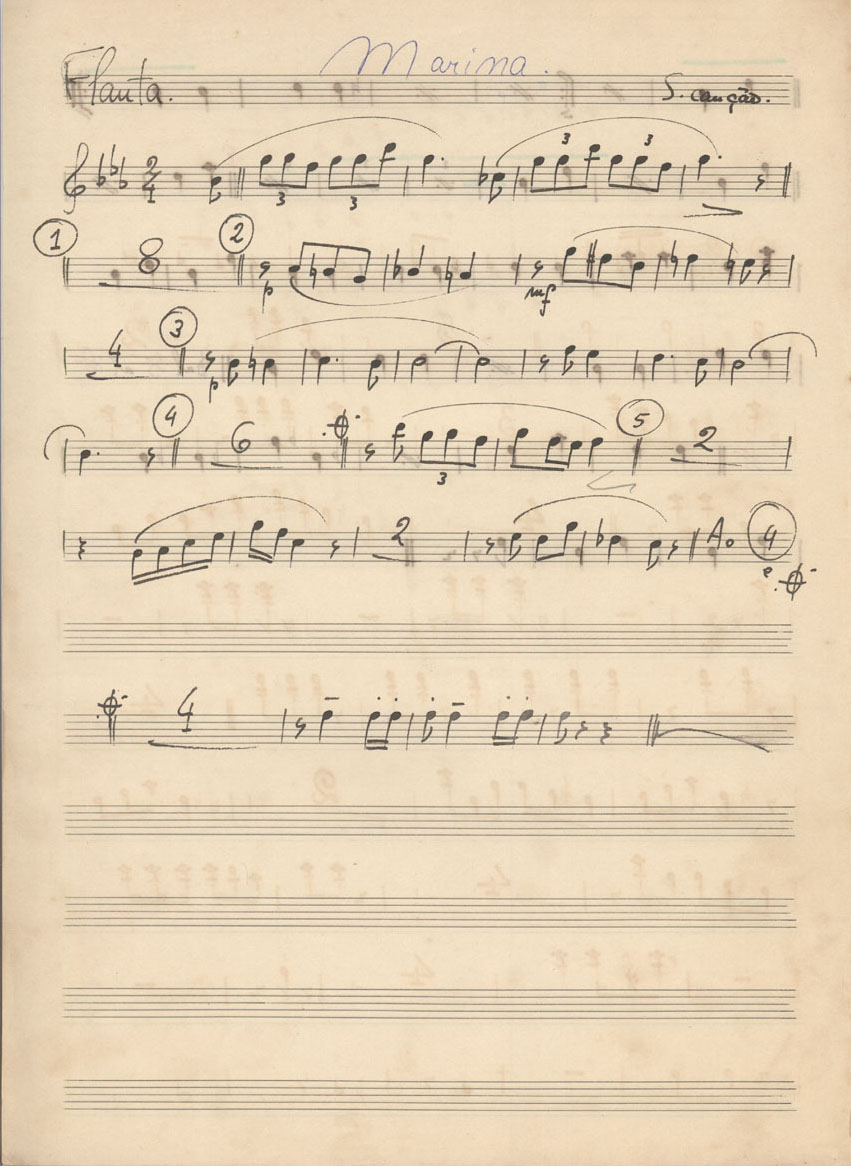 Marina.
Flauta.
S. canção.
2
4
3 3
3 3
1 8 2
p mf
4 3
p
4 6 5 2
3
2 Ao 4
e
4